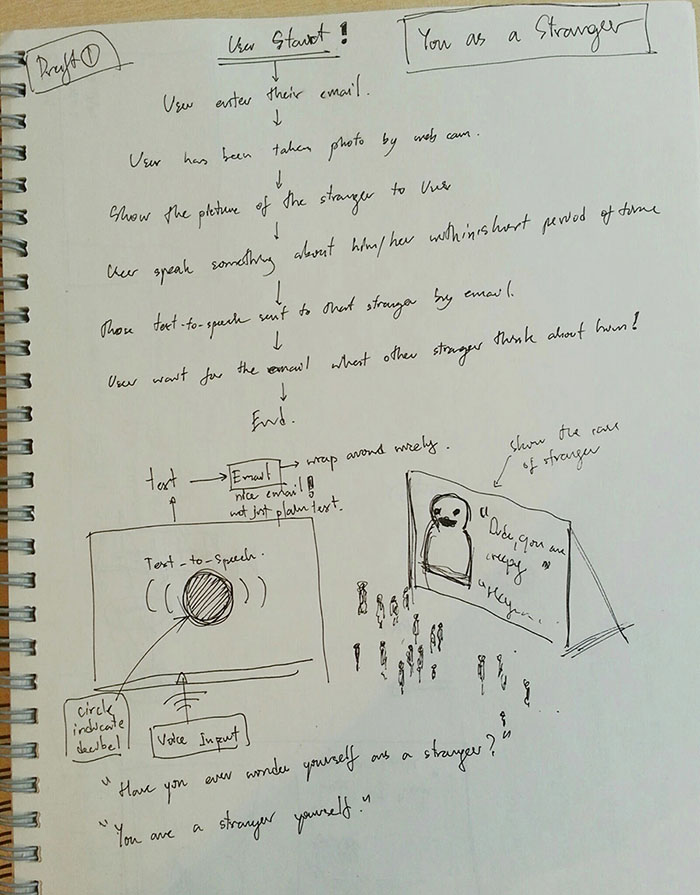 Draft ①
User Start!
You as a Stranger
User enter their email.
User has been taken photo by web cam.
Show the picture of the stranger to User
User speak something about him/her within short period of time
Those text-to-speech sent to that stranger by email.
User wait for the email what other stranger think about him!
End.
text → Email → wrap around nicely.
nice email!
not just plain text.
show the
of stranger
Text-to-Speech.
"Dude, you are
creepy"
circle
indicate
decibel
Voice Input
"Have you ever wonder yourself as a stranger?"
"You are a stranger yourself."